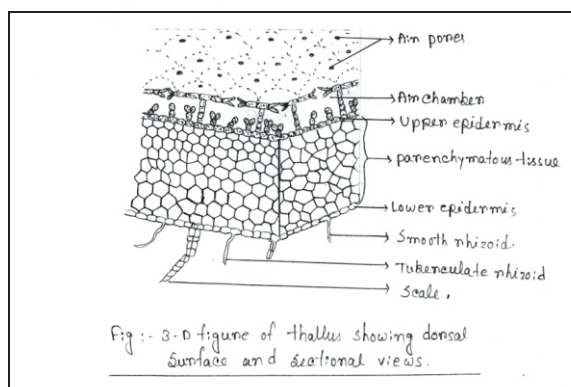 Air pores
Air chamber
Upper epidermis
parenchymatous tissue
Lower epidermis
Smooth rhizoid
Tuberculate rhizoid
Scale.
Fig :- 3-D figure of thallus showing dorsal
surface and sectional views.